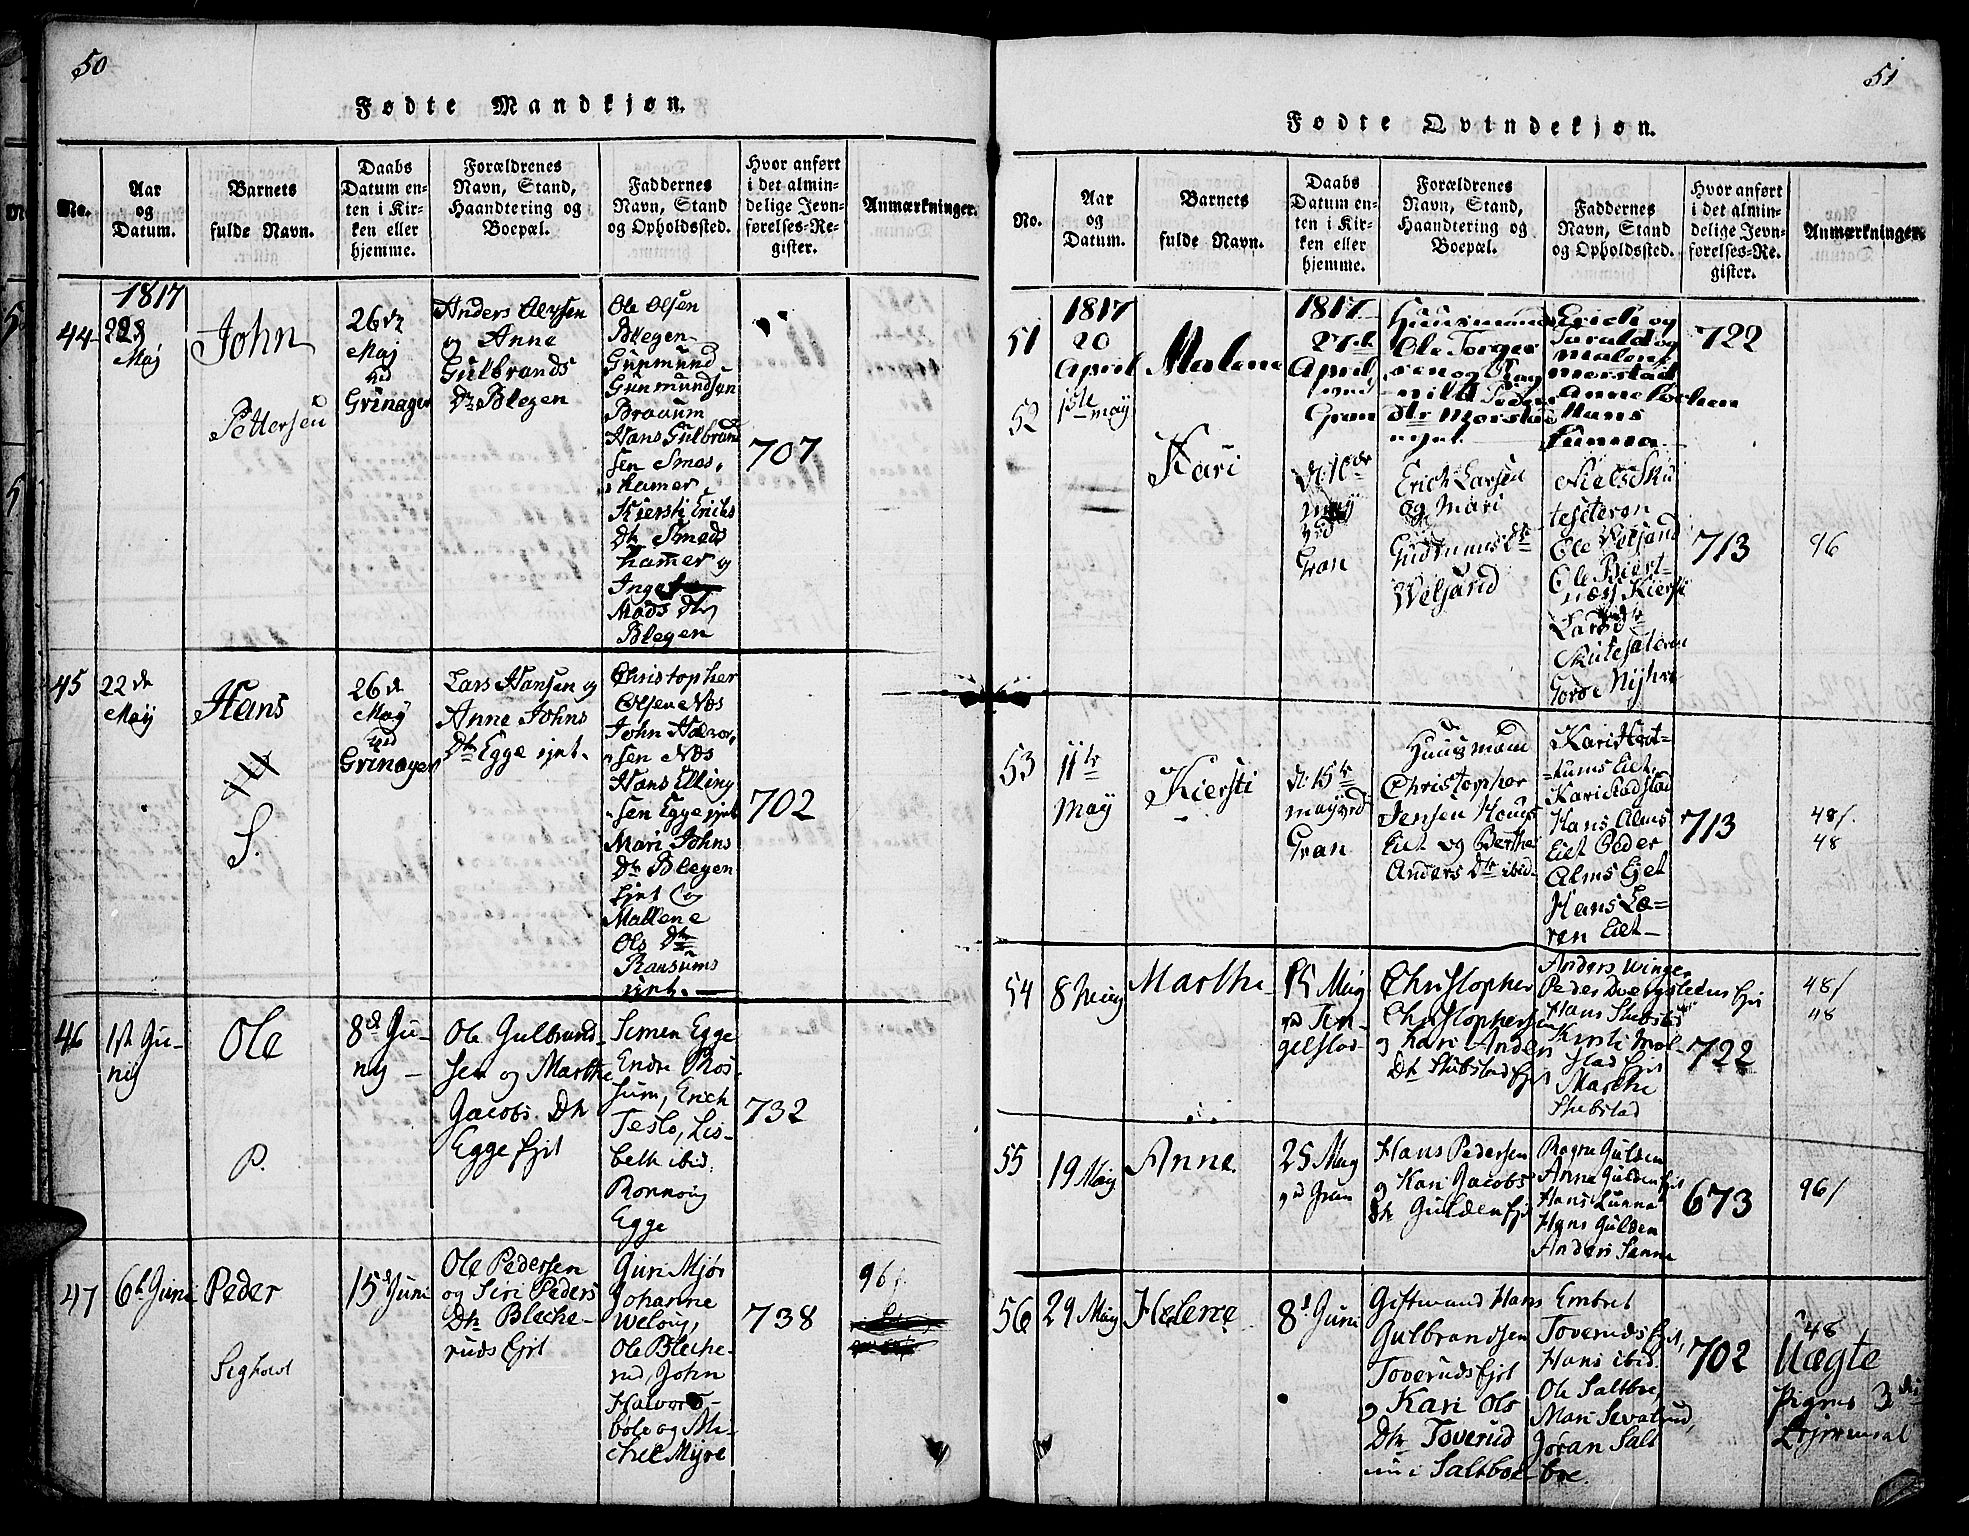 50
Fødte Mandkjøn.
No.
Aar
og
Datum.
Barnets
fulde Navn.
Daabs
Datum en-
ten i Kir-
ken eller
hjemme.
Forældrenes
Navn, Stand,
Haandtering og
Boepæl.
Faddernes
Navn, Stand
og Opholdssted.
Hvor anført
i det almin-
delige Jevn-
førelses-Re-
gister.
Anmærkninger.
44
1817
Maj
John
Pettersen
26
Maj
ved
Grinager
Anders
og Anne
Gulbrands
Dtr Blegen
Ole Olsen
Blegen
Gunmund
Gunmundsen
Hans Gulbrand
sen Smeds
hamer
Kiersti Erichs
Dtr Smeds
hamer og
Mads Dtr
Blegen
707
45
22de
May
Hans
S.
26de
May
ved
Grinager
Lars Hansen og
Anne Johns
Dtr Egge ejet.
Christopher
Olsen Næs
John Halvor
sen Næs
Hans Elling
sen Egge ejet
Mari Johns
Dtr Blegen
Ejet og
Mallene
Ols Dtr
Ransums
ejet.
702
46
1st Ju-
nij
Ole
P.
8de Ju-
nij
Ole Gulbrand-
sen og Marthe
Jacobs Dtr
Egge Ejet
Simen Egge
Endre Ros-
sum, Erich
Teslo, Lis-
beth ibid,
Ronnoug
Egge
732
47
6te Juni
Peder
15de Juni
Ole Pedersen
og Siri Peders
Dtr Bleche-
ruds Ejet
Guri Mjør
Johanne
Ole Bleche-
rud, John
Halvors-
bøle og Mi-
chel Mjøre
738
96
51
Fødte Qvindekjøn.
No.
Aar
og
Datum.
Barnets
fulde Navn.
Daabs
Datum en-
ten i Kir-
ken eller
hjemme.
Forældrenes
Navn, Stand,
Haandtering og
Boepæl.
Faddernes
Navn, Stand
og Opholdssted.
Hvor anført
i det almin-
delige Jevn-
førelses-Re-
gister.
Anmærkninger.
51
1817
20
April
Malene
1817
27de
April
ved
Gran
Huusmand
Ole Torger
sen og
Erich og
Tarald og
Malene
Anne
Hans
722
52
1ste may
Kari
may
ved
Gran
Erich Larsen
og Mari
Gudmunds dtr
Velsand
Niels Sku
teseteren
Ole Velsand
Kiersti
Lars dtr
713
96
53
11te
May
Kiersti
d: 15te
may ved
Gran
Huusmand
Christopher
Jensen
Eiet og Berthe
Anders Dtr ibid.
Kari
Eiet.
Hans Alms
Eiet Peder
Alms Ejet
Hans Læ=
ren Eiet
713
48/.
48
54
8 May
Marthe
15 May
ved Tin-
gelstad
Christopher
Christophersen
og Kari Anders
Dtr Stubstad Ejet
Anders Winger
Hans Stubstad
stad Ejet
Marthe
Stubstad
722
48/
48
55
19 May
Anne
25 May
ved Gran
Hans Pedersen
og Kari Jacobs
Dtr Gulden Ejet
Anne Gulden Ejet
Hans Lunna
Hans Gulden
Anders Sanne
673
96/
56
29 May
Helene
8de Juni
Giftmand Hans
Gulbrandsen
Toveruds Ejet
og Kari Ols
Dtr Toverud
nu i Saltboe
Embret
Toveruds Ejet,
Hans ibid.
Ole Saltboe,
Mari Sevalrud,
Jøran Salt
boe.
702
48
Uægte
Pigens 3die